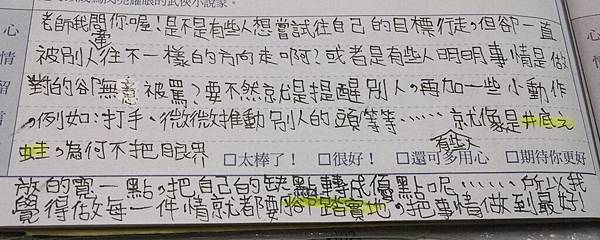 耀眼的武俠小說家。
心情留言
老師我問你喔!是不是有些人想嘗試往自己的目標行走,但卻一直
被別人往不一樣的方向走啊?或者是有些人明明事情是做
對的卻無意被罵?要不然就是提醒別人,再加一些小動作
,例如:打手、微微推動別人的頭等等……就像是井底之
蛙,為何有些人不把眼界
□太棒了! □很好! □還可多用心 □期待你更好
放的寬一點,把自己的缺點轉成優點呢……所以我
覺得做每一件情就都要腳踏實地,把事情做到最好!